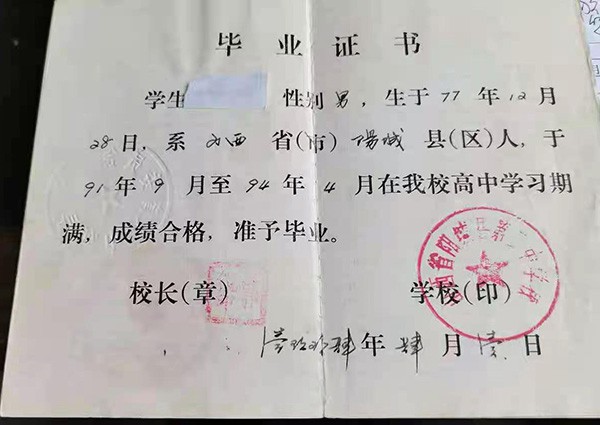 毕业证书
学生 性别男，生于77年12月
28日，系山西省(市)陽城县(区)人，于
91年9月至94年4月在我校高中学习期
满，成绩合格，准予毕业。
校长(章) 学校(印)
壹玖玖肆年肆月壹日